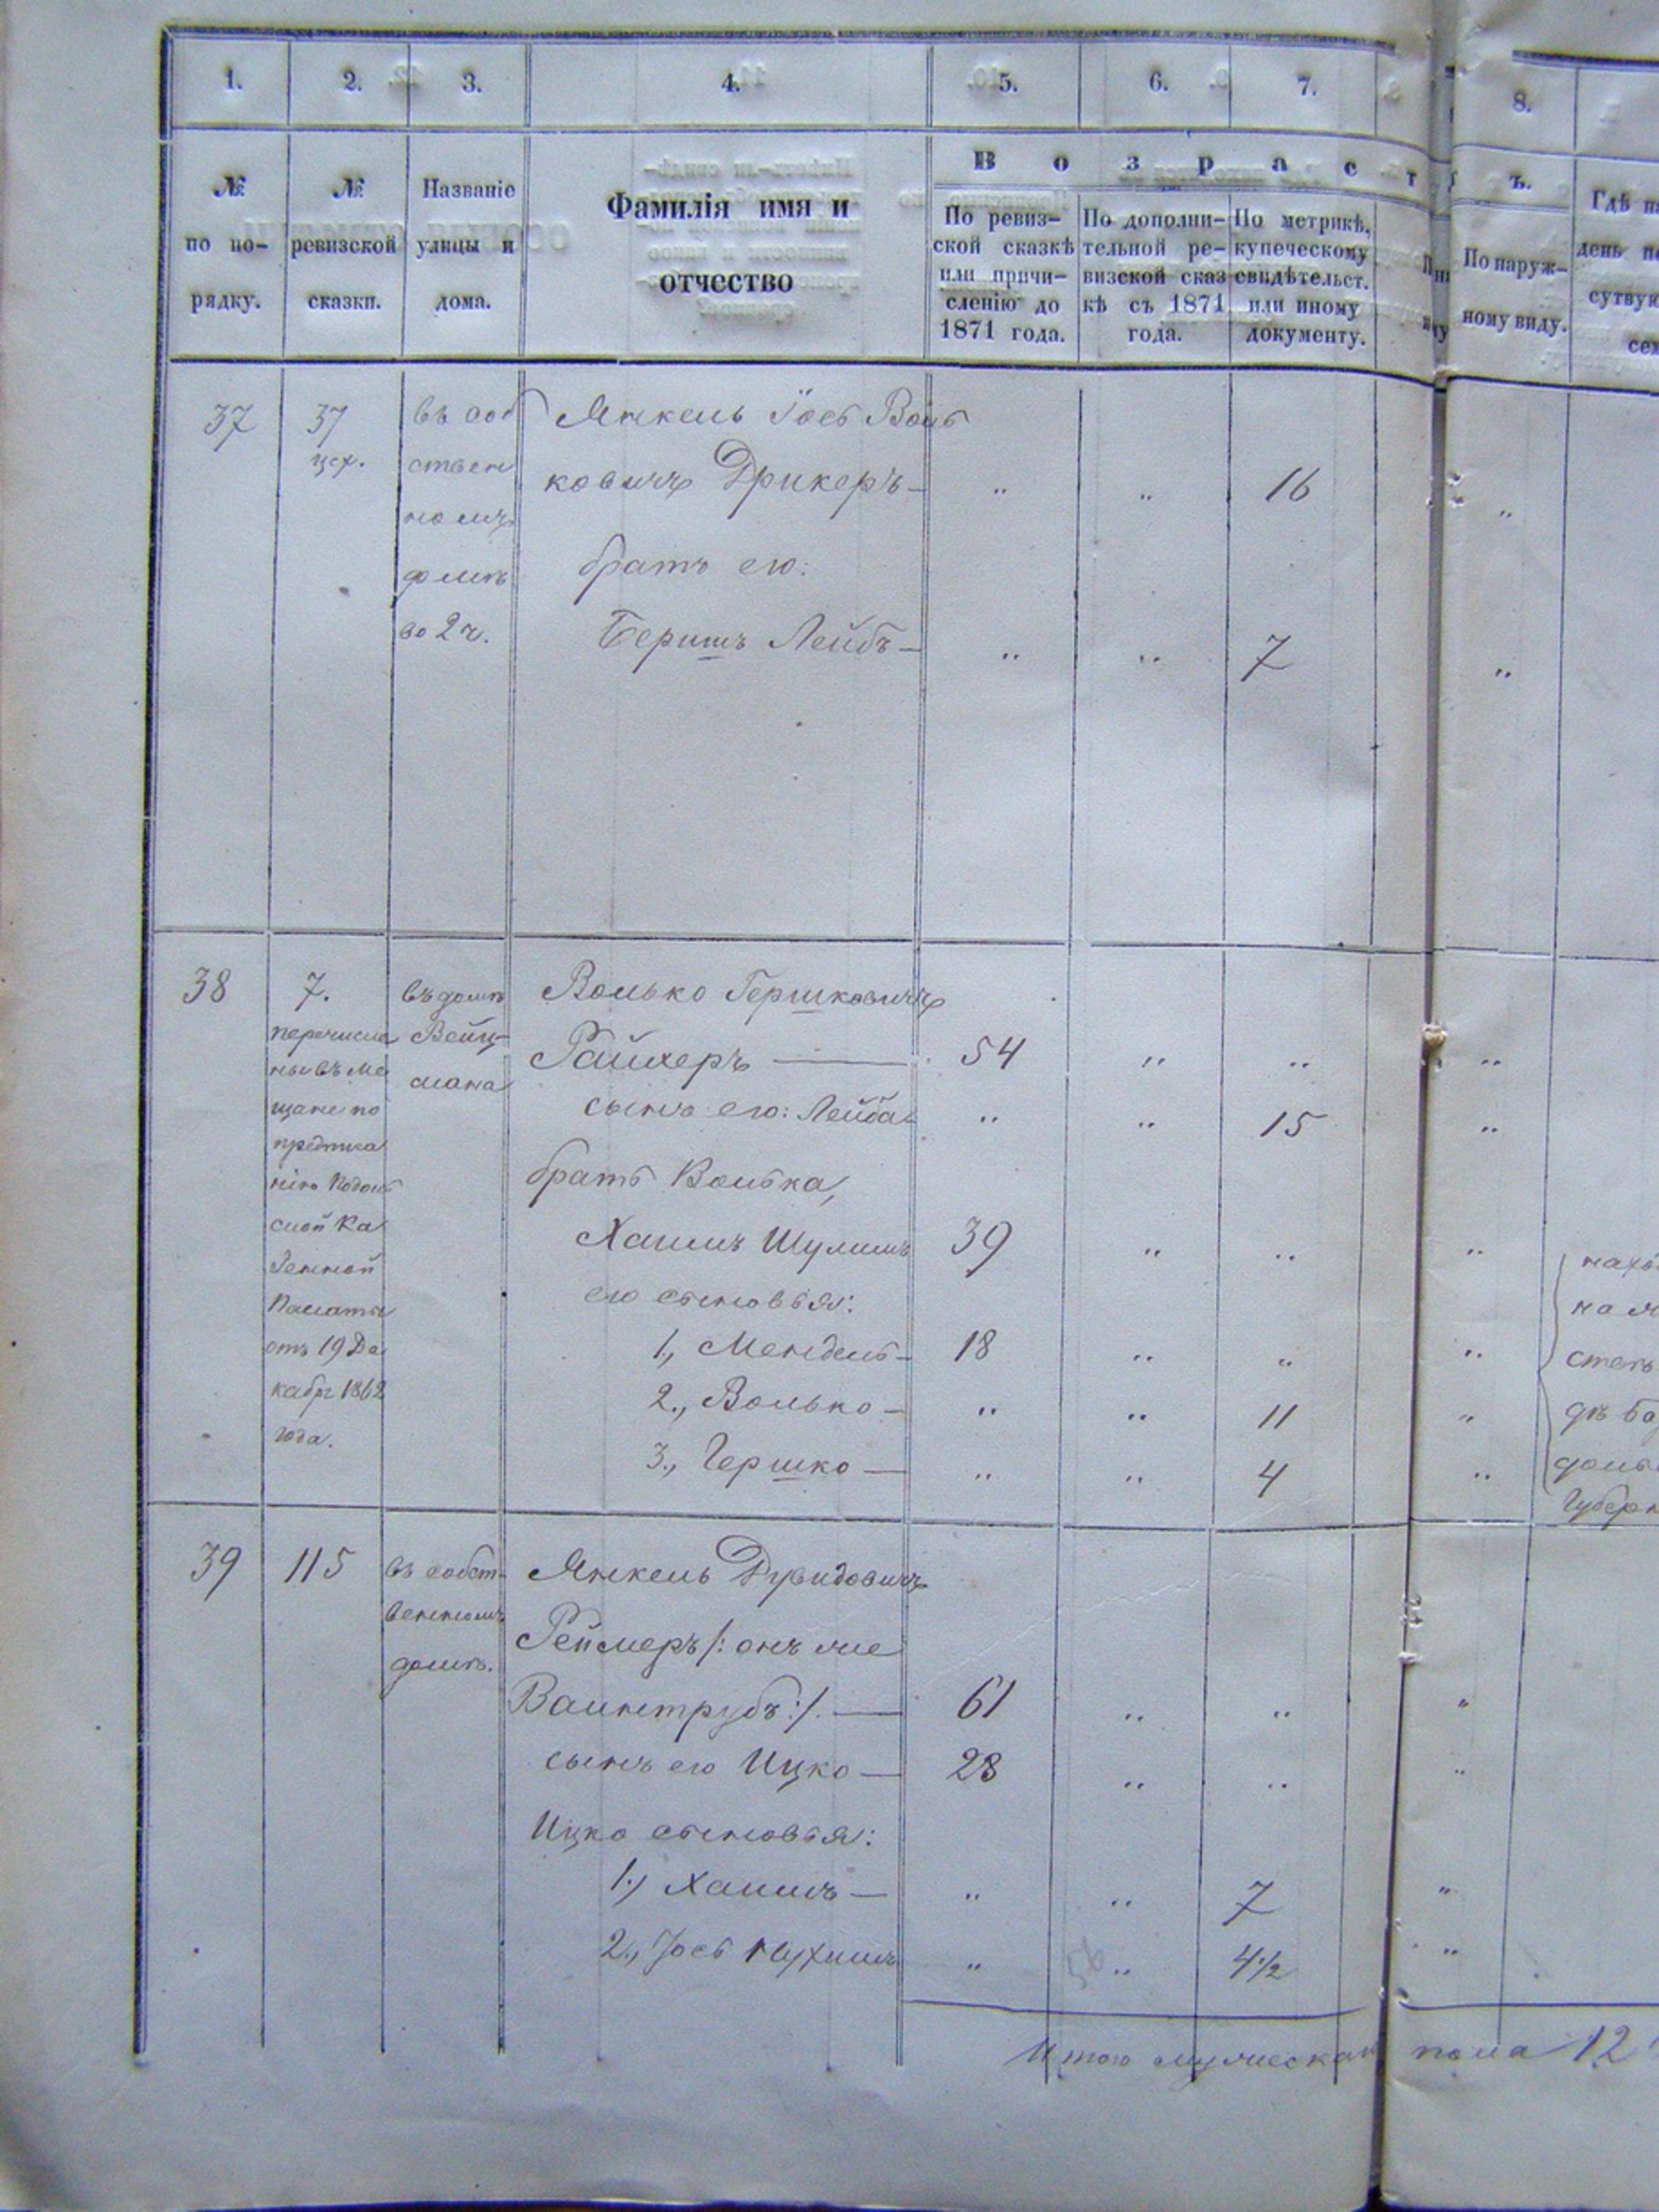 1. 2. 3. 4. 5. 6. 7. 8.
В о з р а с т ъ.
№ по по-рядку.
№ ревизской сказки.
Названіе улицы и дома.
Фамилія имя и отчество
По ревиз-ской сказкѣ или причи-сленію до 1871 года.
По дополни-тельной ре-визской сказ кѣ съ 1871 года.
По метрикѣ, купеческому свидѣтельст. или иному документу.
По наруж-ному виду.
Гдѣ на
день по
сутвую
сем
37
37
цех.
въ соб
ствен
номъ
домѣ
во 2 ч.
Янкель Іось Воль
ковичъ Дрикеръ — „ „ 16 „
братъ его:
Беришъ Лейбъ — „ „ 7 „
38
7.
перечисле
ны въ ме
щане по
предписа
нію Подоль
ской Ка
зенной
Палаты
отъ 19 Де
кабря 1862
года.
въ домѣ
Вейц-
мана
Волько Гершковичъ
Райхеръ — 54 „ „ „
сынъ его: Лейба „ „ 15 „
братъ Волька,
Хаимъ Шулимъ 39 „ „ „
его сыновья:
1., Мендель — 18 „ „ „
2., Волько — „ „ 11 „
3., Гершко — „ „ 4 „
нахо
на м
стеч
дѣ
доль
Губерн
39
115
въ собст-
венномъ
домѣ.
Янкель Дувидовичъ
Реймеръ /: онъ же
Ваинтрубъ :/. — 61 „ „ „
сынъ его Ицко — 28 „ „ „
Ицко сыновья:
1., Хаимъ — „ „ 7 „
2., Іось Нухимъ „ „ 4 1/2 „
Итого мужеска пола 12